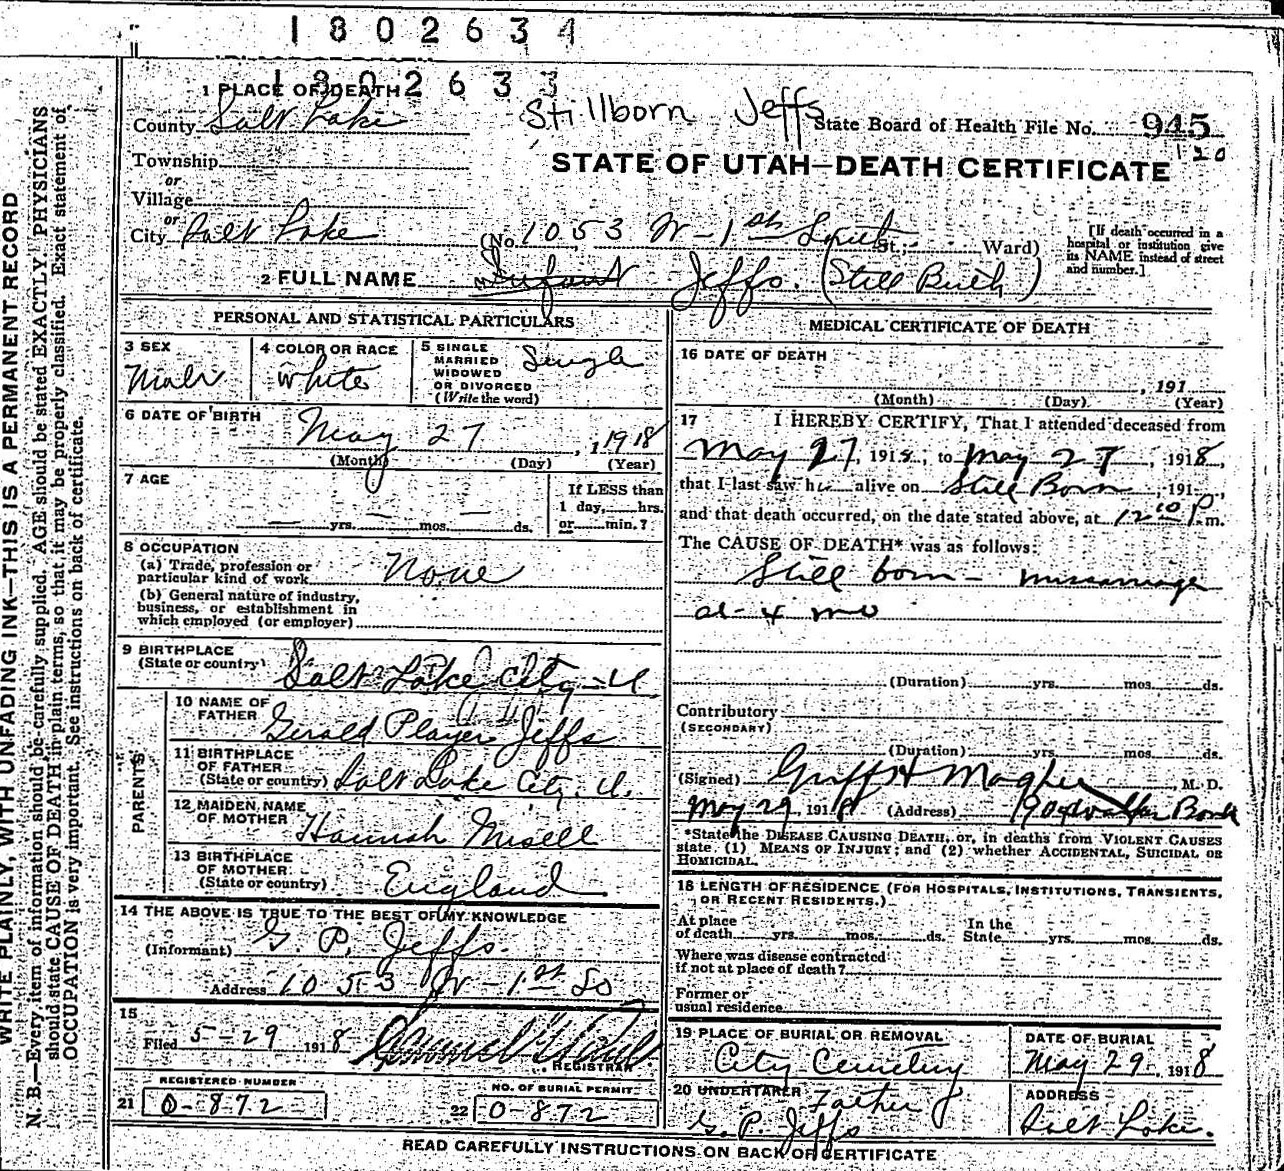 1802634
1802633
1 PLACE OF DEATH
Stillborn Jeffs
County Salt Lake
State Board of Health File No. 945
120
Township
STATE OF UTAH—DEATH CERTIFICATE
or
Village
or
City Salt Lake (No. 1053 W-1st South St.; Ward)
[If death occurred in a hospital or institution give its NAME instead of street and number.]
2 FULL NAME Infant Jeffs. (Still Birth)
PERSONAL AND STATISTICAL PARTICULARS
3 SEX Male
4 COLOR OR RACE white
5 SINGLE MARRIED WIDOWED OR DIVORCED (Write the word) Single
6 DATE OF BIRTH May 27, 1918
(Month) (Day) (Year)
7 AGE
If LESS than
1 day, hrs.
— yrs. — mos. — ds. or min.?
8 OCCUPATION
(a) Trade, profession or
particular kind of work None
(b) General nature of industry,
business, or establishment in
which employed (or employer)
9 BIRTHPLACE
(State or country) Salt Lake City - U
PARENTS
10 NAME OF
FATHER Gerald Player Jeffs
11 BIRTHPLACE
OF FATHER
(State or country) Salt Lake City. U.
12 MAIDEN NAME
OF MOTHER Hannah Misell
13 BIRTHPLACE
OF MOTHER
(State or country) England
14 THE ABOVE IS TRUE TO THE BEST OF MY KNOWLEDGE
(Informant) G. P. Jeffs.
Address 1053 W-1st So
15
Filed 5-29 1918
REGISTRAR
REGISTERED NUMBER
21 0-872
NO. OF BURIAL PERMIT
22 0-872
MEDICAL CERTIFICATE OF DEATH
16 DATE OF DEATH
, 191
(Month) (Day) (Year)
17 I HEREBY CERTIFY, That I attended deceased from
May 27, 1918, to May 27, 1918,
that I last saw h alive on Still Born, 191 ,
and that death occurred, on the date stated above, at 12 10 P.m.
The CAUSE OF DEATH* was as follows:
Still born - miscarriage
at 4 mo
(Duration) yrs. mos. ds.
Contributory
(SECONDARY)
(Duration) yrs. mos. ds.
(Signed) M. D.
May 29, 1918 (Address) Walker Bank
*State the DISEASE CAUSING DEATH, or, in deaths from VIOLENT CAUSES
state (1) MEANS OF INJURY; and (2) whether ACCIDENTAL, SUICIDAL OR
HOMICIDAL.
18 LENGTH OF RESIDENCE (FOR HOSPITALS, INSTITUTIONS, TRANSIENTS,
OR RECENT RESIDENTS.)
At place In the
of death yrs. mos. ds. State yrs. mos. ds.
Where was disease contracted
if not at place of death?
Former or
usual residence
19 PLACE OF BURIAL OR REMOVAL
City Cemetery
DATE OF BURIAL
May 29, 1918
20 UNDERTAKER Father
G. P. Jeffs
ADDRESS
Salt Lake.
READ CAREFULLY INSTRUCTIONS ON BACK OF CERTIFICATE
WRITE PLAINLY, WITH UNFADING INK—THIS IS A PERMANENT RECORD
N. B.—Every item of information should be carefully supplied. AGE should be stated EXACTLY. PHYSICIANS
should state CAUSE OF DEATH in plain terms, so that it may be properly classified. Exact statement of
OCCUPATION is very important. See instructions on back of certificate.